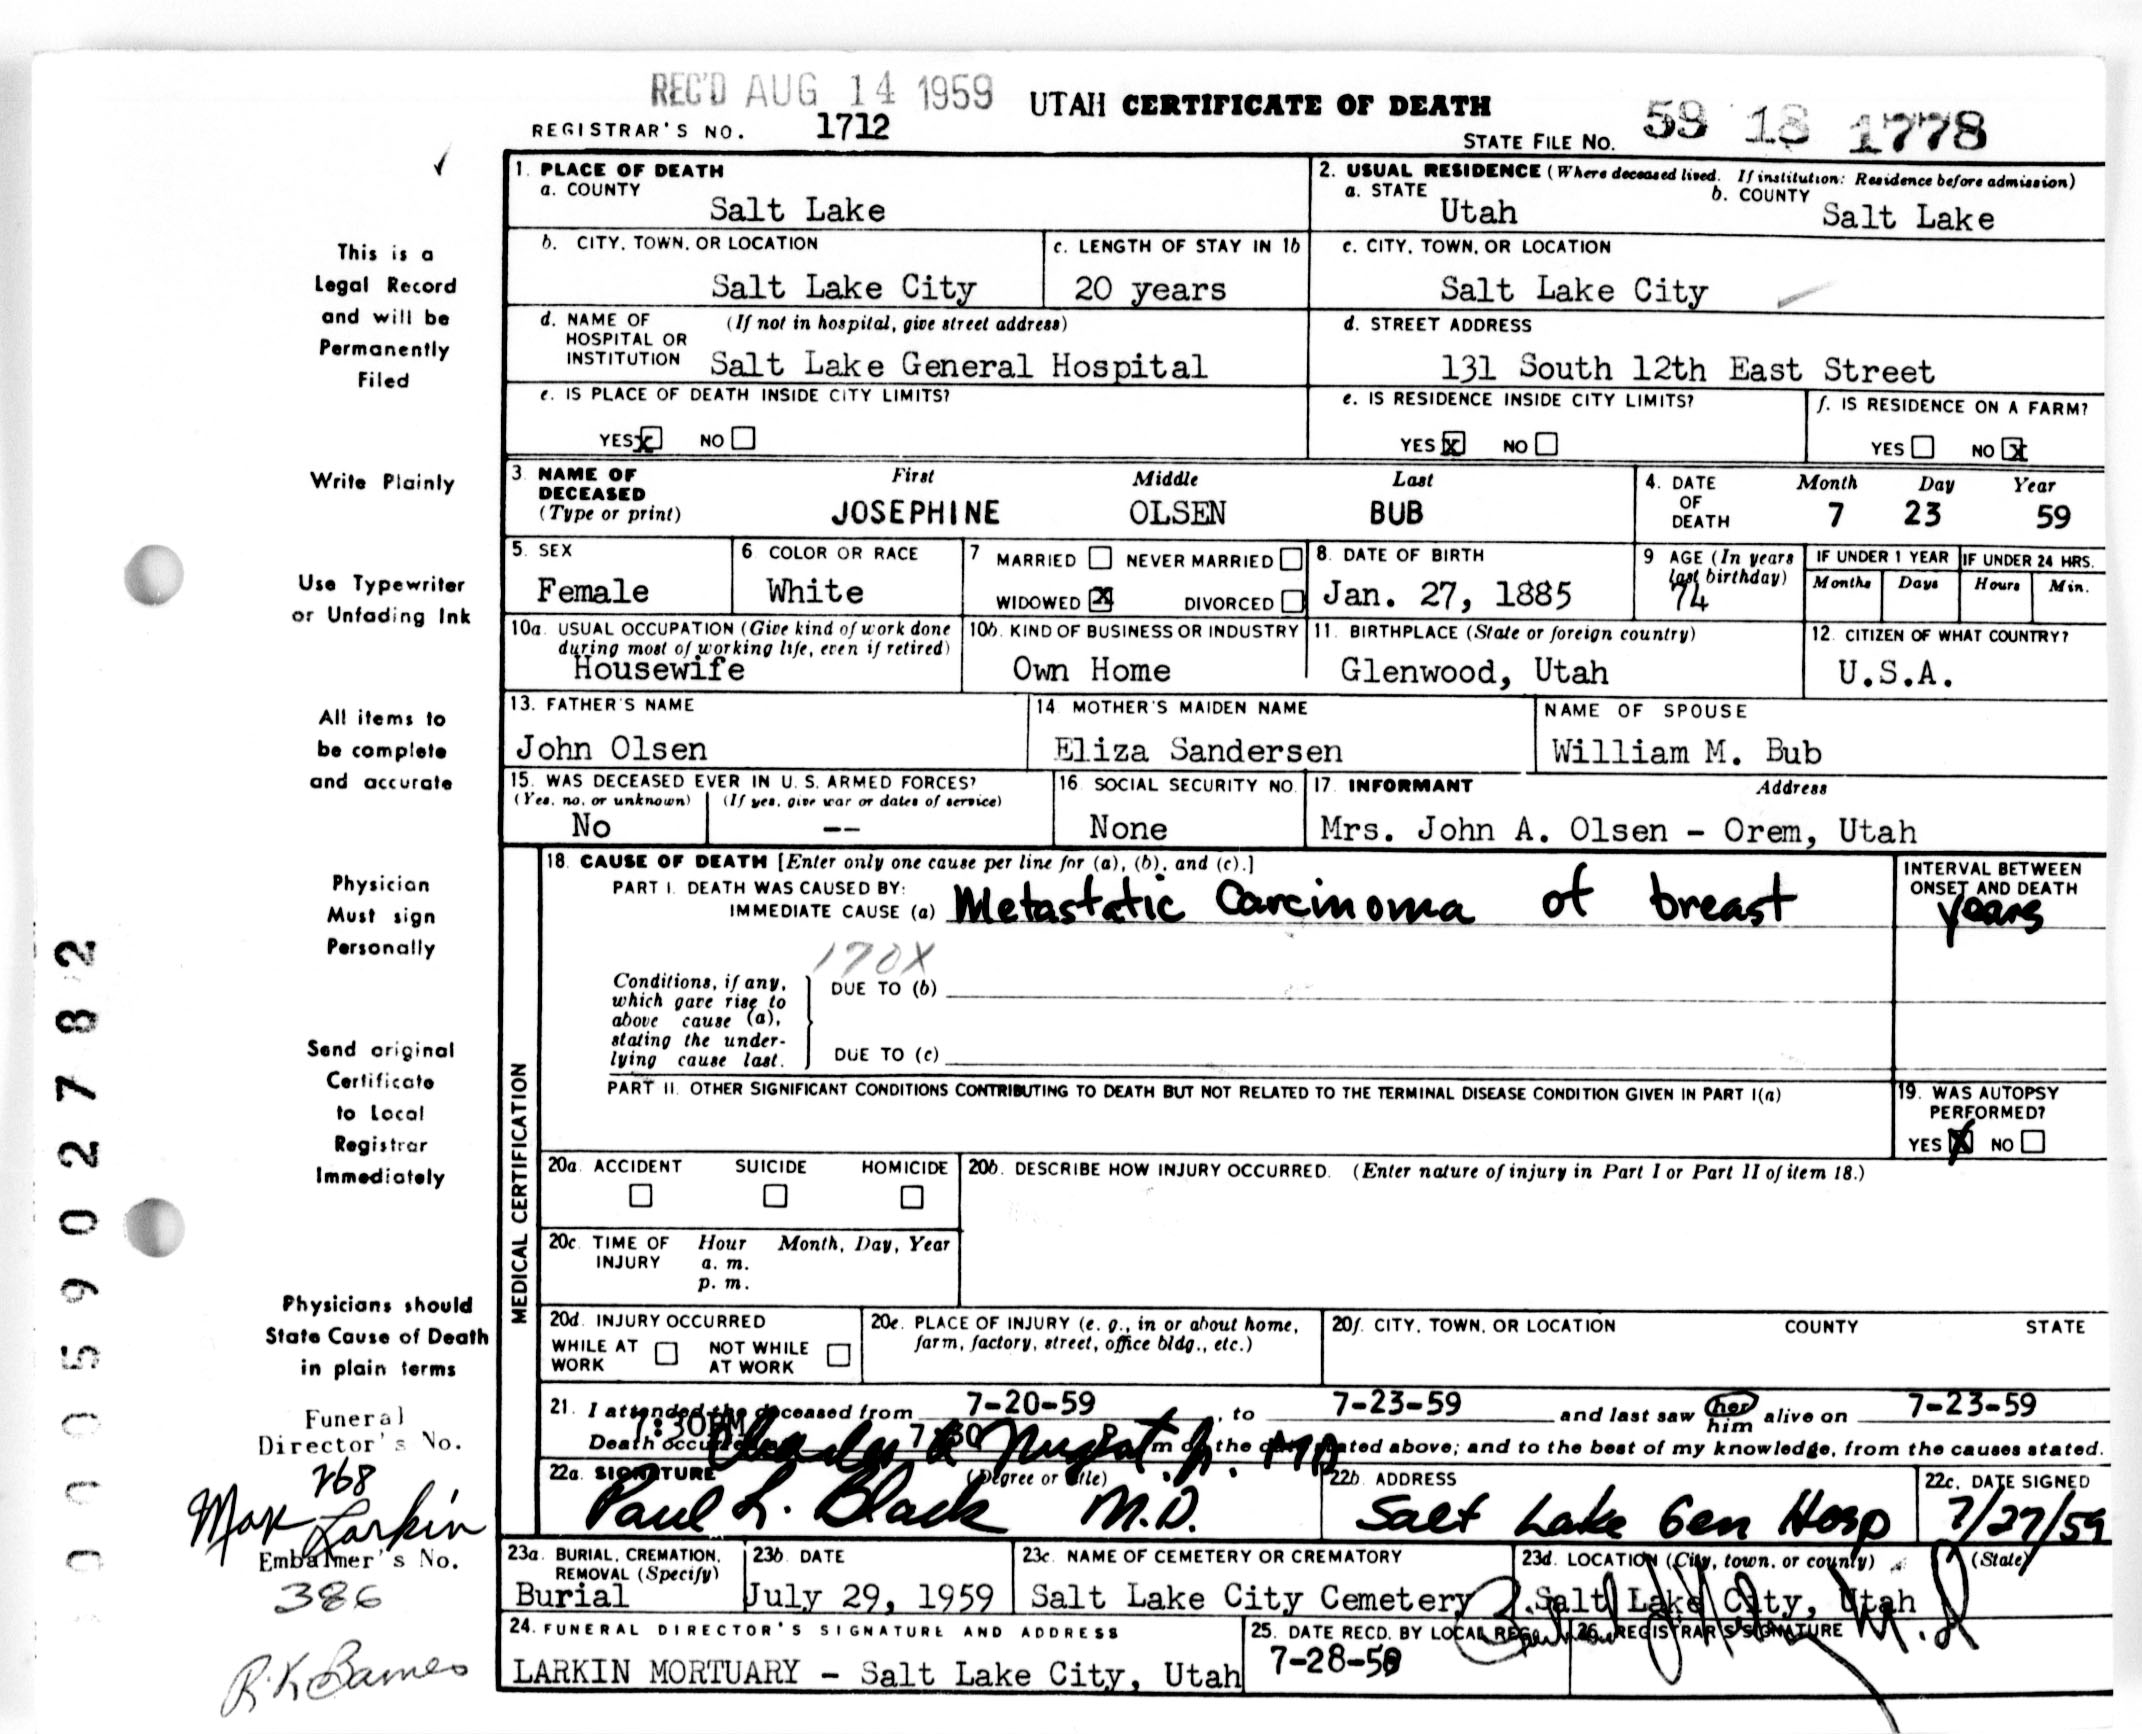 REC'D AUG 14 1959
UTAH CERTIFICATE OF DEATH
REGISTRAR'S NO. 1712
STATE FILE NO. 59 18 1778
1. PLACE OF DEATH
a. COUNTY
Salt Lake
2. USUAL RESIDENCE (Where deceased lived. If institution: Residence before admission)
a. STATE Utah b. COUNTY Salt Lake
b. CITY, TOWN, OR LOCATION
Salt Lake City
c. LENGTH OF STAY IN 1b
20 years
c. CITY, TOWN, OR LOCATION
Salt Lake City
d. NAME OF HOSPITAL OR INSTITUTION (If not in hospital, give street address)
Salt Lake General Hospital
d. STREET ADDRESS
131 South 12th East Street
e. IS PLACE OF DEATH INSIDE CITY LIMITS?
YES x NO
e. IS RESIDENCE INSIDE CITY LIMITS?
YES X NO
f. IS RESIDENCE ON A FARM?
YES NO X
3. NAME OF DECEASED (Type or print)
First Middle Last
JOSEPHINE OLSEN BUB
4. DATE OF DEATH
Month Day Year
7 23 59
5. SEX
Female
6. COLOR OR RACE
White
7 MARRIED NEVER MARRIED
WIDOWED X DIVORCED
8. DATE OF BIRTH
Jan. 27, 1885
9 AGE (In years last birthday)
74
IF UNDER 1 YEAR
Months Days
IF UNDER 24 HRS.
Hours Min.
10a. USUAL OCCUPATION (Give kind of work done during most of working life, even if retired)
Housewife
10b. KIND OF BUSINESS OR INDUSTRY
Own Home
11. BIRTHPLACE (State or foreign country)
Glenwood, Utah
12. CITIZEN OF WHAT COUNTRY?
U.S.A.
13. FATHER'S NAME
John Olsen
14. MOTHER'S MAIDEN NAME
Eliza Sandersen
NAME OF SPOUSE
William M. Bub
15. WAS DECEASED EVER IN U. S. ARMED FORCES?
(Yes, no, or unknown) (If yes, give war or dates of service)
No --
16. SOCIAL SECURITY NO.
None
17. INFORMANT Address
Mrs. John A. Olsen - Orem, Utah
MEDICAL CERTIFICATION
18. CAUSE OF DEATH [Enter only one cause per line for (a), (b), and (c).]
PART I. DEATH WAS CAUSED BY:
IMMEDIATE CAUSE (a) Metastatic Carcinoma of breast
INTERVAL BETWEEN ONSET AND DEATH
years
170X
Conditions, if any, which gave rise to above cause (a), stating the underlying cause last.
DUE TO (b)
DUE TO (c)
PART II. OTHER SIGNIFICANT CONDITIONS CONTRIBUTING TO DEATH BUT NOT RELATED TO THE TERMINAL DISEASE CONDITION GIVEN IN PART I(a)
19. WAS AUTOPSY PERFORMED?
YES X NO
20a. ACCIDENT SUICIDE HOMICIDE
20b. DESCRIBE HOW INJURY OCCURRED. (Enter nature of injury in Part I or Part II of item 18.)
20c. TIME OF INJURY Hour Month, Day, Year
a. m.
p. m.
20d. INJURY OCCURRED
WHILE AT WORK NOT WHILE AT WORK
20e. PLACE OF INJURY (e. g., in or about home, farm, factory, street, office bldg., etc.)
20f. CITY, TOWN, OR LOCATION COUNTY STATE
21. I attended the deceased from 7-20-59, to 7-23-59 and last saw her him alive on 7-23-59
7:30PM
Death occurred 7:30 P m on the date stated above; and to the best of my knowledge, from the causes stated.
22a. SIGNATURE (Degree or title)
Paul L. Black M.D.
22b. ADDRESS
Salt Lake Gen Hosp
22c. DATE SIGNED
7/27/59
23a. BURIAL, CREMATION, REMOVAL (Specify)
Burial
23b. DATE
July 29, 1959
23c. NAME OF CEMETERY OR CREMATORY
Salt Lake City Cemetery
23d. LOCATION (City, town, or county) (State)
Salt Lake City, Utah
24. FUNERAL DIRECTOR'S SIGNATURE AND ADDRESS
LARKIN MORTUARY - Salt Lake City, Utah
25. DATE RECD. BY LOCAL REG.
7-28-59
26. REGISTRAR'S SIGNATURE
This is a
Legal Record
and will be
Permanently
Filed
Write Plainly
Use Typewriter
or Unfading Ink
All items to
be complete
and accurate
Physician
Must sign
Personally
Send original
Certificate
to Local
Registrar
Immediately
Physicians should
State Cause of Death
in plain terms
Funeral
Director's No.
268
Max Larkin
Embalmer's No.
386
R. K. Barnes
000590 2782